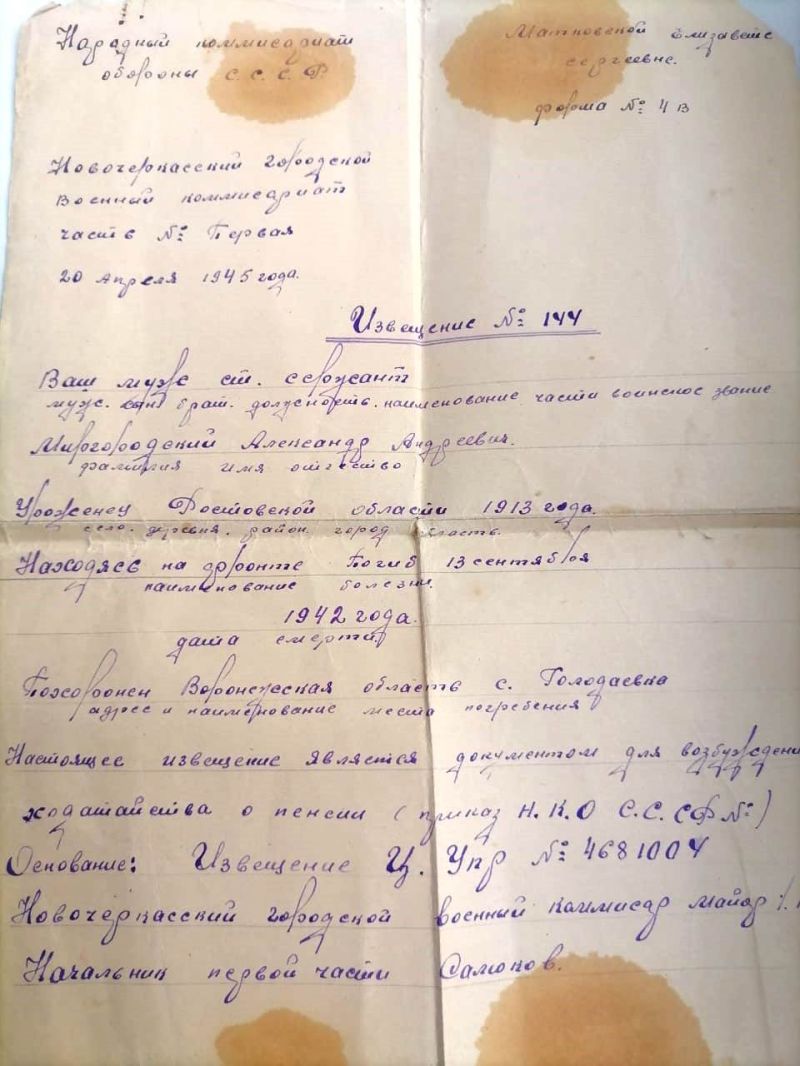 Народный коммисариат
обороны С.С.С.Р
Матковской Елизавете
сергеевне.
форма № 4 в
Новочеркасский городской
Военный коммисариат
часть № Первая
20 Апреля 1945 года.
Извещение № 144
Ваш муж ст. сержант
муж. сын брат. должность. наименование части воинское звание
Миргородский Александр Андреевич.
фамилия имя отчество
Уроженец Ростовской области 1913 года.
село. деревня. район. город область.
Находясь на фронте Погиб 13 сентября
наименование болезни.
1942 года.
дата смерти
Похоронен Воронежская область с. Голодаевка
адрес и наименование места погребения
Настоящее извещение является документом для возбуждени
ходатайства о пенсии (приказ Н.К.О С.С.СР №)
Основание: Извещение Ц. Упр № 4681004
Новочеркасский городской военный коммисар майор
Начальник первой части Самоков.